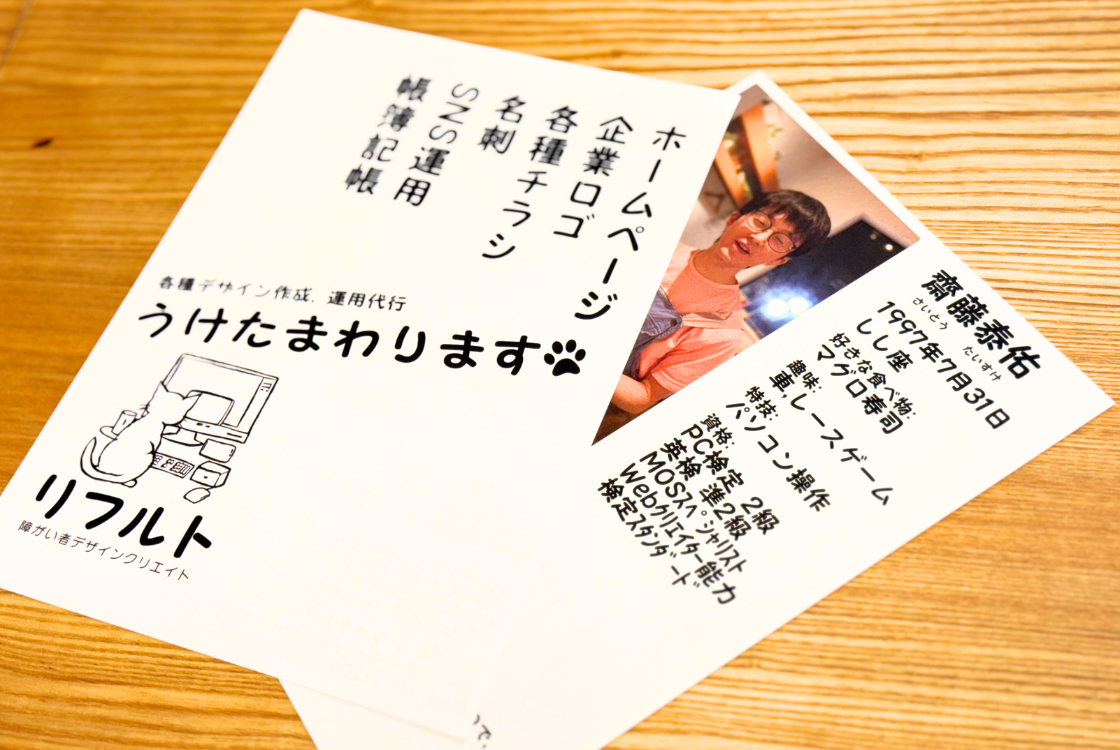 ホームページ
企業ロゴ
各種チラシ
名刺
SNS運用
帳簿記帳
各種デザイン作成、運用代行
うけたまわります
リフルト
障がい者デザインクリエイト
齋藤泰佑
さいとう たいすけ
1997年7月31日
しし座
好きな食べ物:
マグロ寿司
趣味:
車,レースゲーム
特技:
パソコン操作
資格:
PC検定 2級
英検 準2級
MOSスペシャリスト
Webクリエイター能力
検定スタンダード